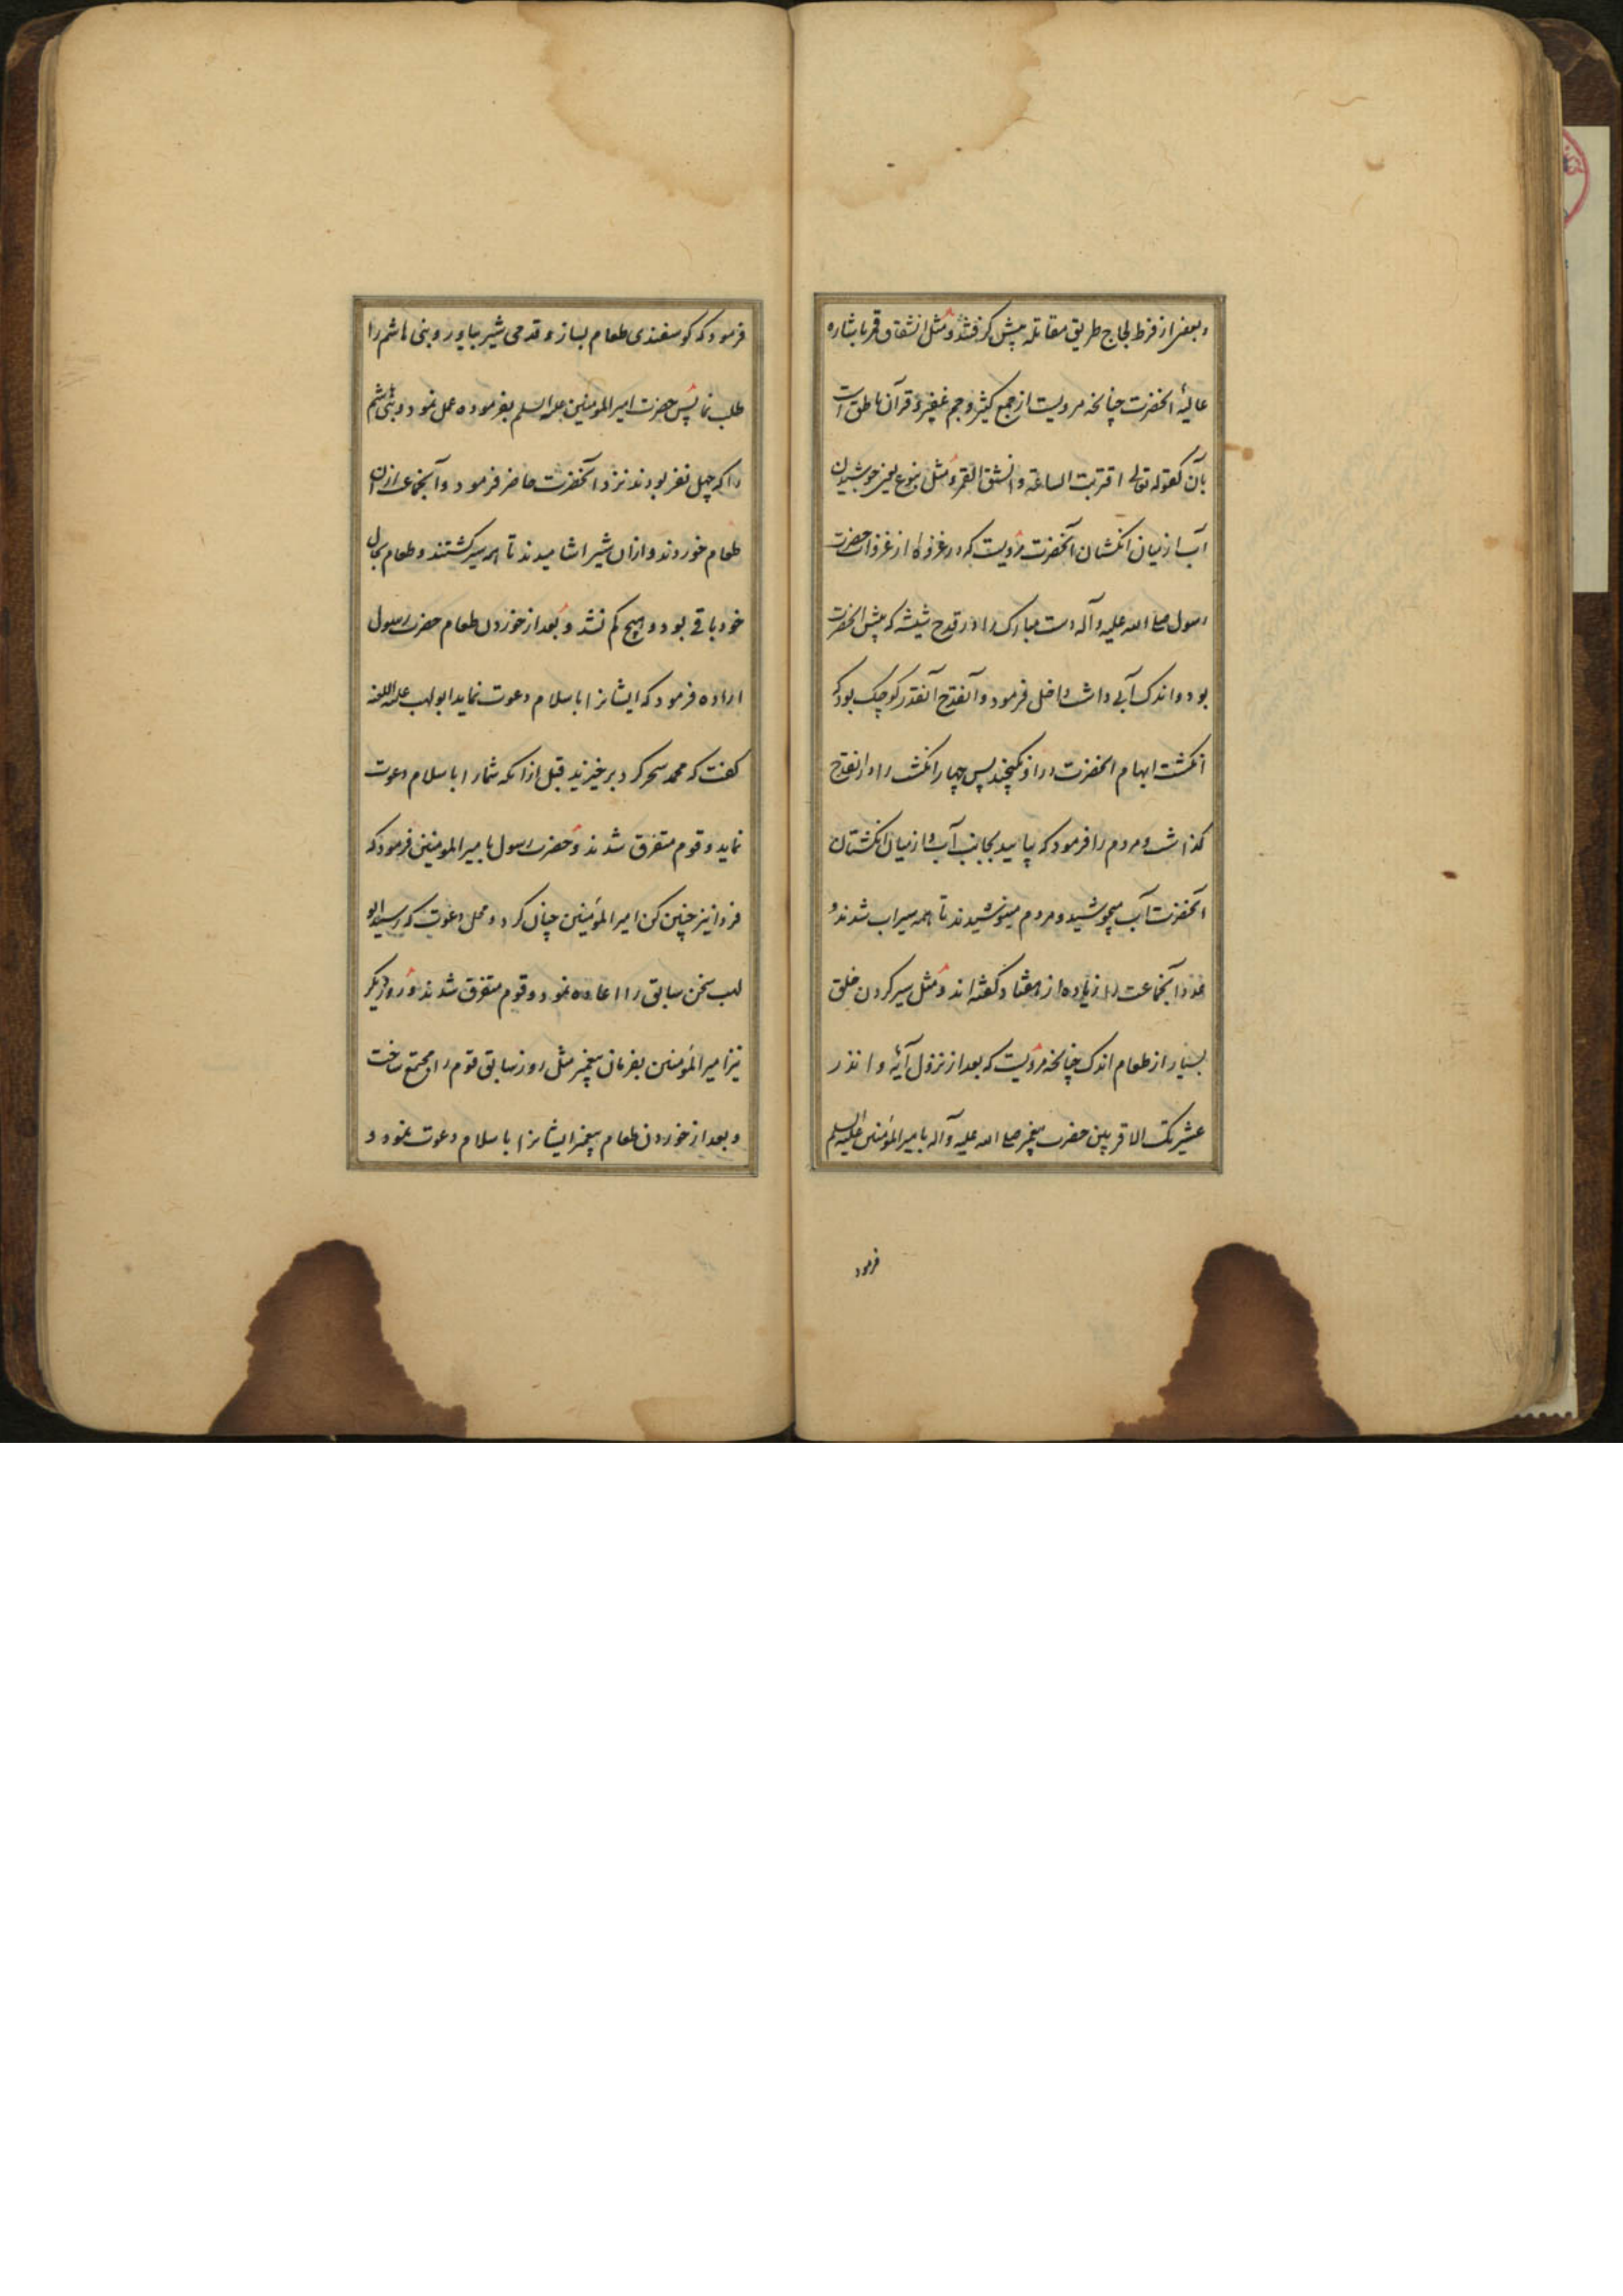 وبعضی از فرط لجاج طریق مقاتله پیش گرفتند و مثل انشقاق قمر باشاره
عالیهٔ آنحضرت چنانچه مرویست از جمع کثیر و جم غفیر و قرآن ناطق است
بآن کقوله تعالی اقتربت الساعة وانشق القمر و مثل ینبوع یعنی جوشیدن
آب از میان انگشتان آنحضرت مرویست که در غزوهٔ از غزوات حضرت
رسول صلی الله علیه وآله دست مبارک را در قدح شیشه که پیش آنحضرت
بود و اندک آبی داشت داخل فرمود و آنقدح آنقدر کوچک بود که
انگشت ابهام آنحضرت در او نمیگنجید پس چهار انگشت را در آنقدح
گذاشت و مردم را فرمود که بیایید بجانب آب و از میان انگشتان
آنحضرت آب میجوشید و مردم مینوشیدند تا همه سیراب شدند و
عدد آنجماعت را زیاده از هفتاد گفته اند و مثل سیر کردن خلق
بسیار از طعام اندک چنانچه مرویست که بعد از نزول آیهٔ وانذر
عشیرتک الاقربین حضرت پیغمبر صلی الله علیه وآله بامیرالمؤمنین علیه السلم
فرمود
فرمود که گوسفندی طعام بساز و قدحی شیر بیاور و بنی هاشم را
طلب نما پس حضرت امیرالمؤمنین علیه السلم بفرموده عمل نمود و بنی هاشم
را که چهل نفر بودند نزد آنحضرت حاضر فرمود و آنجماعت ازان
طعام خوردند و ازان شیر اشامیدند تا همه سیر گشتند و طعام بحال
خود باقی بود و هیچ کم نشد و بعد از خوردن طعام حضرت رسول
اراده فرمود که ایشانرا باسلام دعوت نماید ابولهب علیه اللعنه
گفت که محمد سحر کرد برخیزید قبل ازانکه شمارا باسلام دعوت
نماید و قوم متفرق شدند و حضرت رسول بامیرالمومنین فرمود که
فردا نیز چنین کن امیرالمؤمنین چنان کرد و محل دعوت که رسید ابو
لهب سخن سابق را اعاده نمود و قوم متفرق شدند و روز دیگر
نیز امیرالمؤمنین بفرمان پیغمبر مثل روز سابق قوم را مجتمع ساخت
و بعد از خوردن طعام پیغمبر ایشانرا باسلام دعوت نمود و